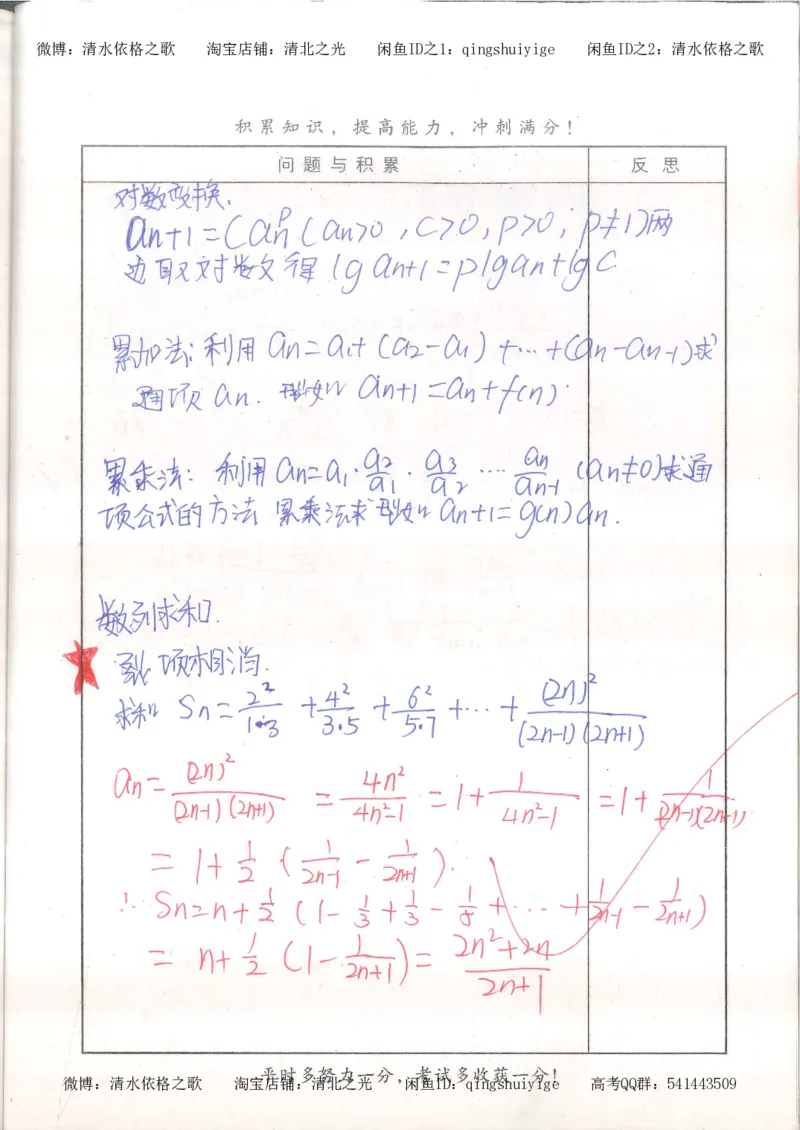 微博：清水依格之歌 淘宝店铺：清北之光 闲鱼ID之1：qingshuiyige 闲鱼ID之2：清水依格之歌
积累知识，提高能力，冲刺满分！
问题与积累 反思
对数变换.
an+1=Can^p (an>0, C>0, p>0, p≠1)两
边取对数得 lg an+1=plgan+lg C
累加法：利用 an=a1+(a2-a1)+…+(an-an-1)求
通项 an. 型如 an+1=an+f(n).
累乘法：利用an=a1·a2/a1·a3/a2…·an/an-1 (an≠0)求通
项公式的方法 累乘法求型如 an+1=g(n)an.
数列求和.
裂项相消.
求和 Sn=2²/1·3+4²/3·5+6²/5·7+…+(2n)²/(2n-1)(2n+1)
an=(2n)²/(2n-1)(2n+1)=4n²/4n²-1=1+1/4n²-1=1+1/(2n-1)(2n+1)
=1+1/2(1/2n-1-1/2n+1).
∴Sn=n+1/2(1-1/3+1/3-1/5+…+1/2n-1-1/2n+1)
=n+1/2(1-1/2n+1)=2n²+2n/2n+1
平时多努力一分，考试多收获一分！
微博：清水依格之歌 淘宝店铺：清北之光 闲鱼ID：qingshuiyige 高考QQ群：541443509